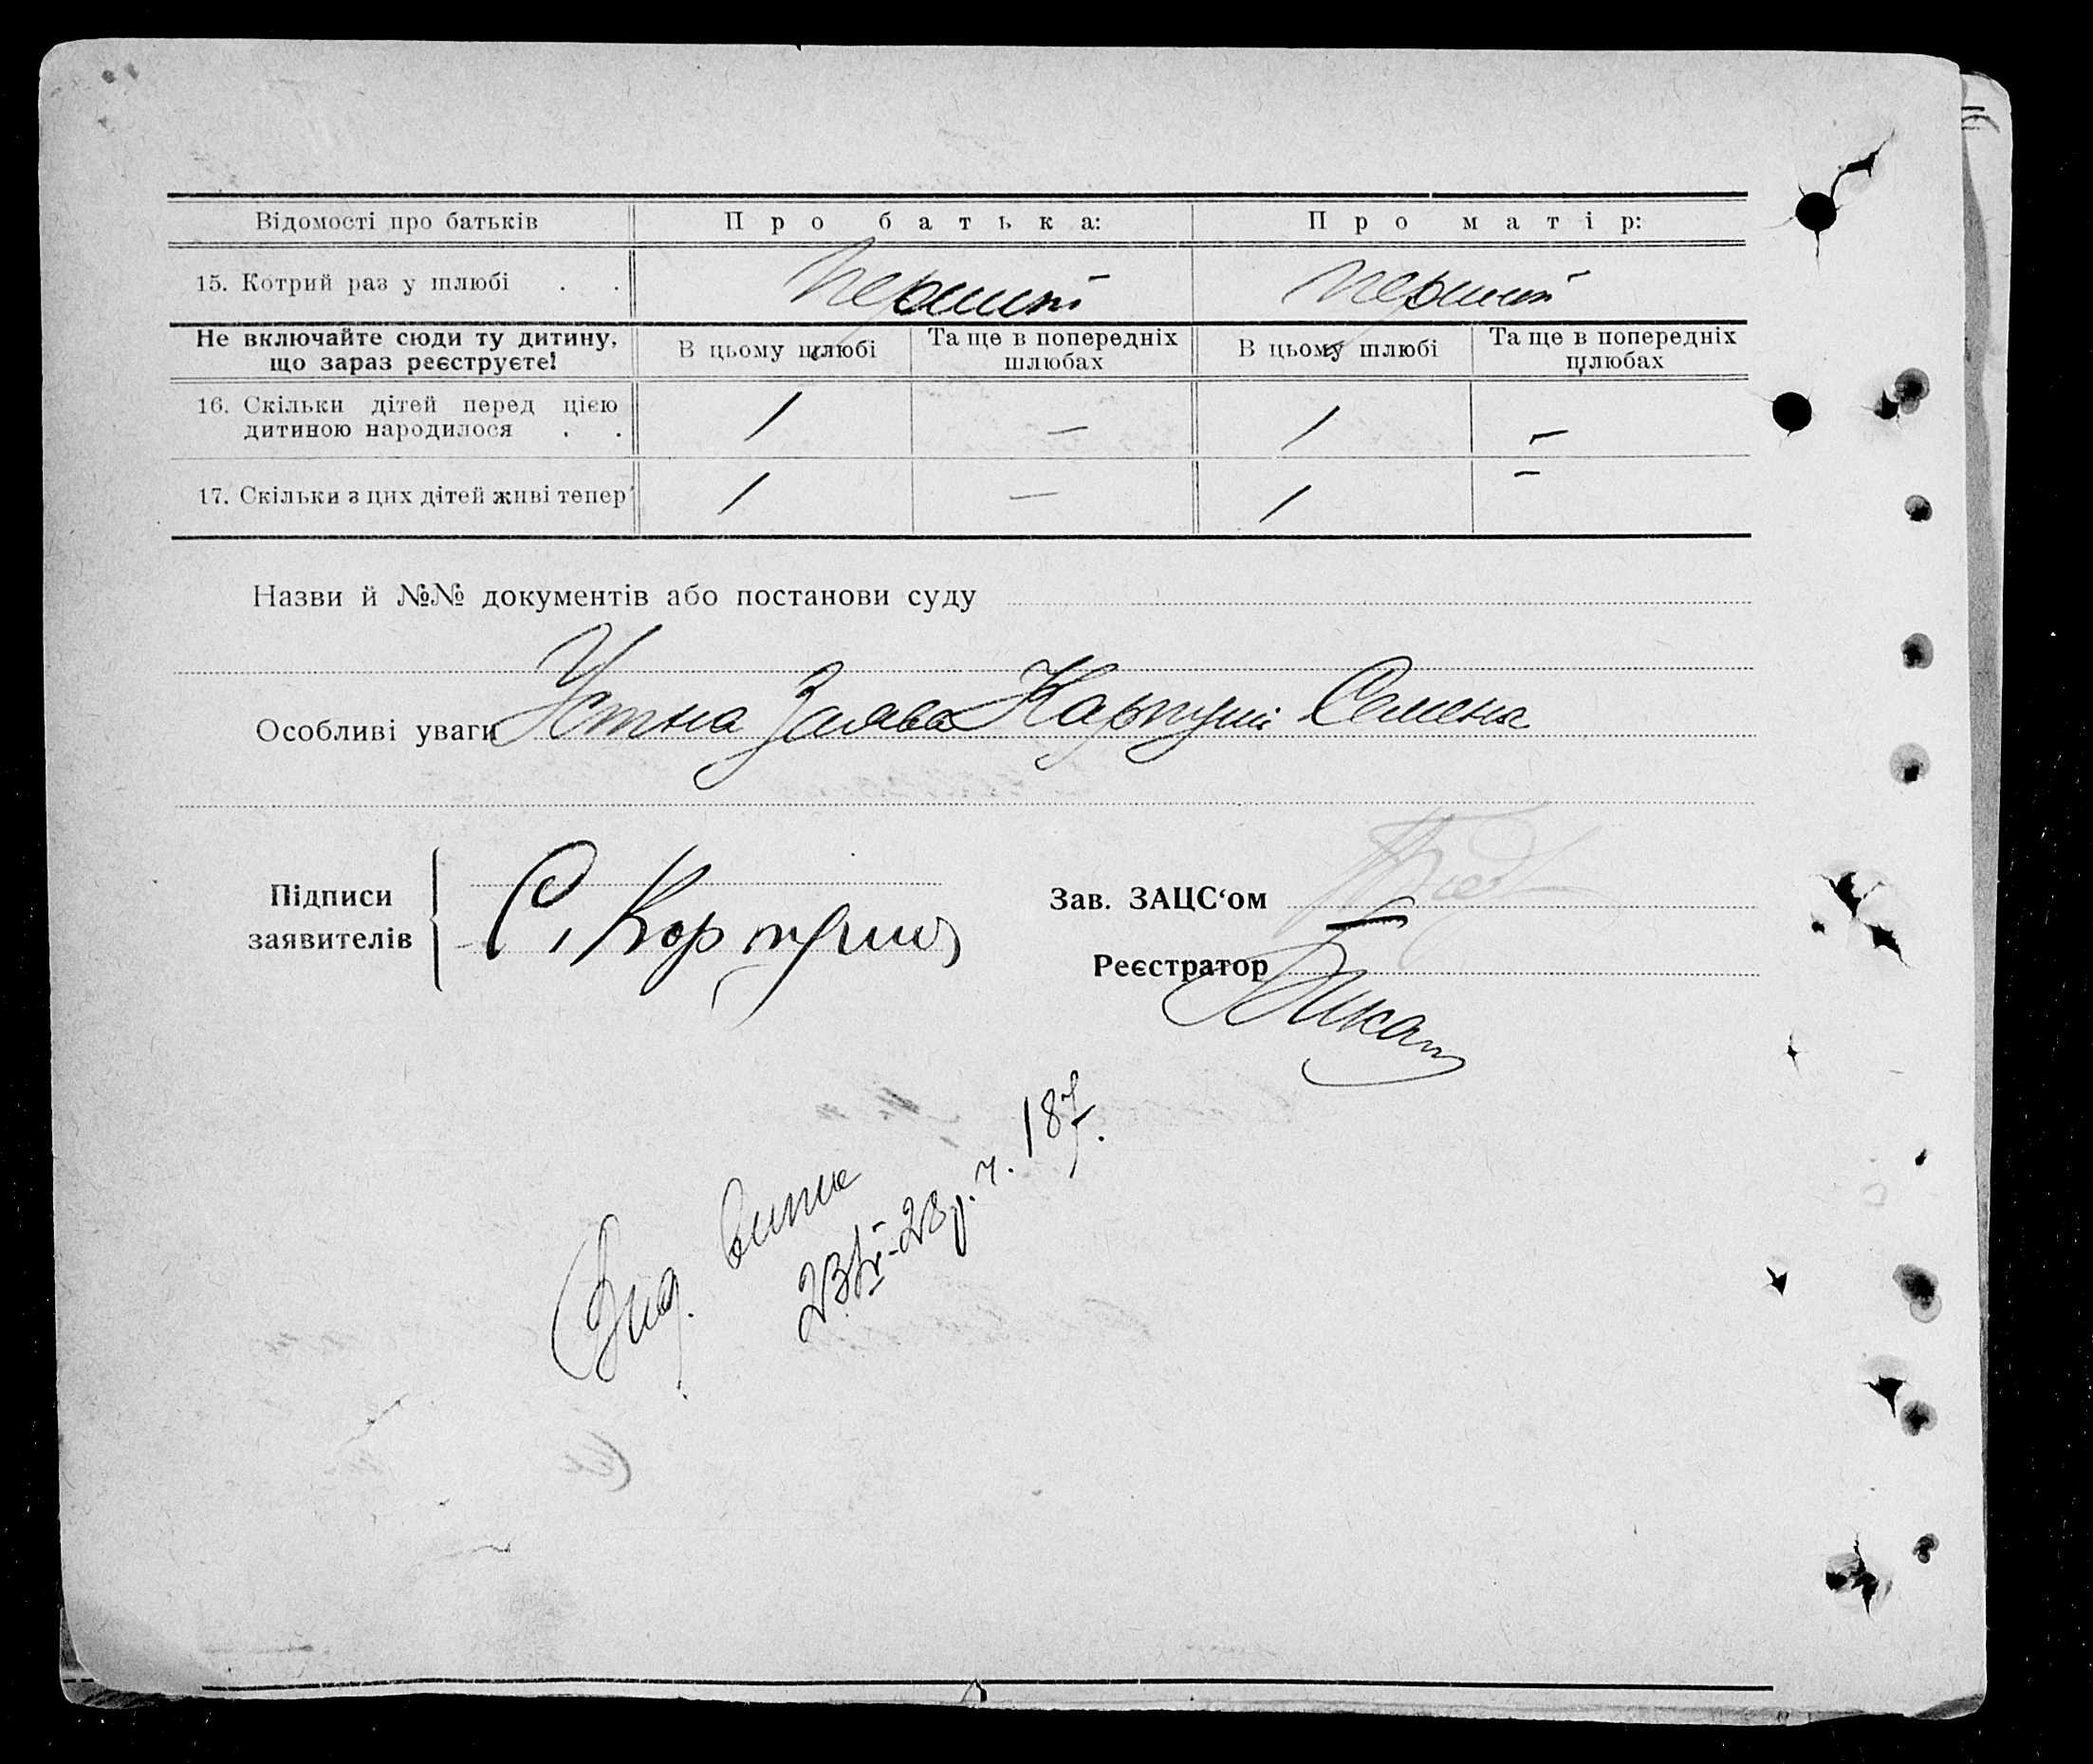 Відомості про батьків
Про батька:
Про матір:
15. Котрий раз у шлюбі . .
перший
перший
Не включайте сюди ту дитину, що зараз реєструєте!
В цьому шлюбі
Та ще в попередніх шлюбах
В цьому шлюбі
Та ще в попередніх шлюбах
16. Скільки дітей перед цією
дитиною народилося . .
1
—
1
—
17. Скільки з цих дітей живі тепер
1
—
1
—
Назви й №№ документів або постанови суду
Особливі уваги Устна Заява Карпуши Семена
Підписи
заявителів
С. Карпуша
Зав. ЗАЦС‘ом
Реєстратор
Вид. випис
28 р. ч. 187.